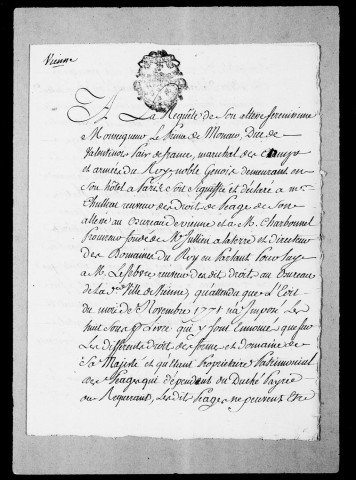 Vienne
A La Requête de Son altesse serenissime
Monseigneur Le Prince de Monaco, Duc de
Valentinois Pair de france, marechal des camps
et armées du Roy, noble Genois demeurant en
Son hôtel a Paris soit signiffié et déclaré a mr
Thullian receveur des Droits de Peage de Son
altesse au Bureau de vienne et a M. Charbonnel
Procureur fondé de Mr Jullien a laterre et directeur
des Domaines du Roy en
a M. Lefebvre receveur des dit droits au Bureau
de la de Ville de Vienne, qu'attendu que L'Edit
du mois de Novembre 1771 n'a Imposé Les
huit Sous pr Livre qui y Sont Enoncés que sur
Les differents droits de ferme et domaine de
Sa Majesté et qu'Etant Proprietaire Patrimonial
des Peages qui dépendent du Duché Payrie
ou Requerant, Les dit Peages ne peuvent Etre